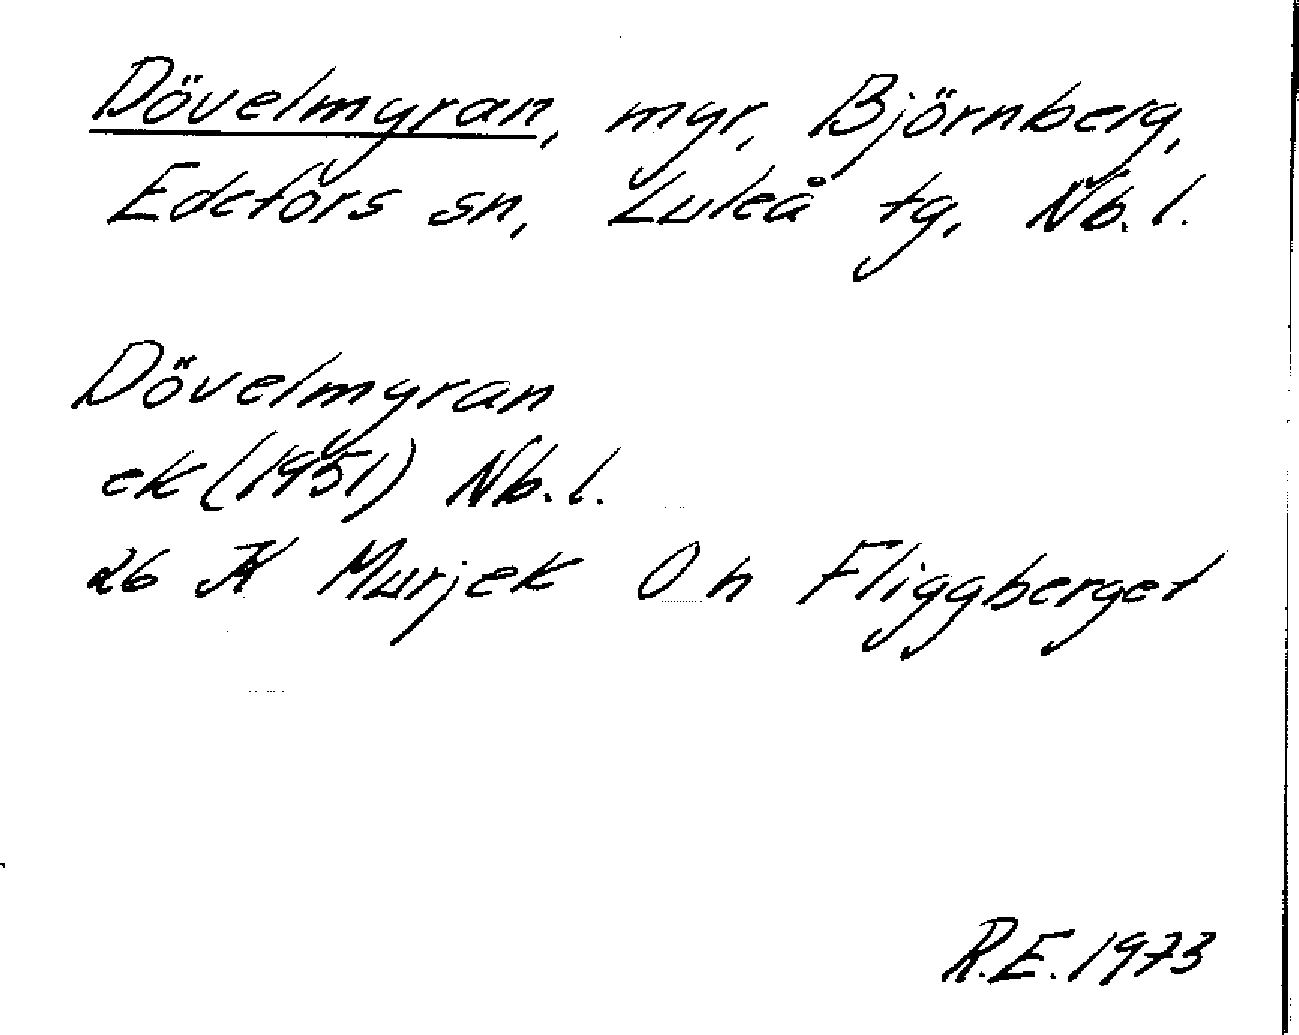 Dövelmyran, myr, Björnberg,
Edefors sn, Luleå tg, Nb. l.
Dövelmyran
ek (1951) Nb. l.
26 K Murjek O h Fliggberget
R.E. 1973